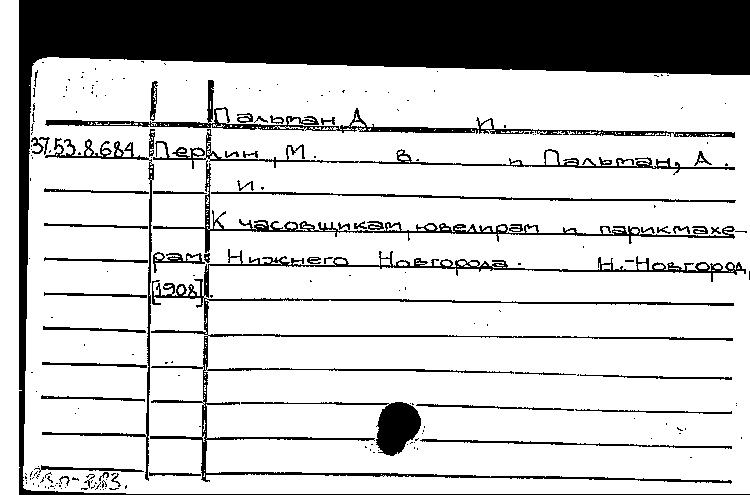 Пальман, А. И.
37.53.8.684. Перлин, М. В. и Пальман, А.
И.
К часовщикам, ювелирам и парикмахе-
рам Нижнего Новгорода. Н.-Новгород,
[1908].